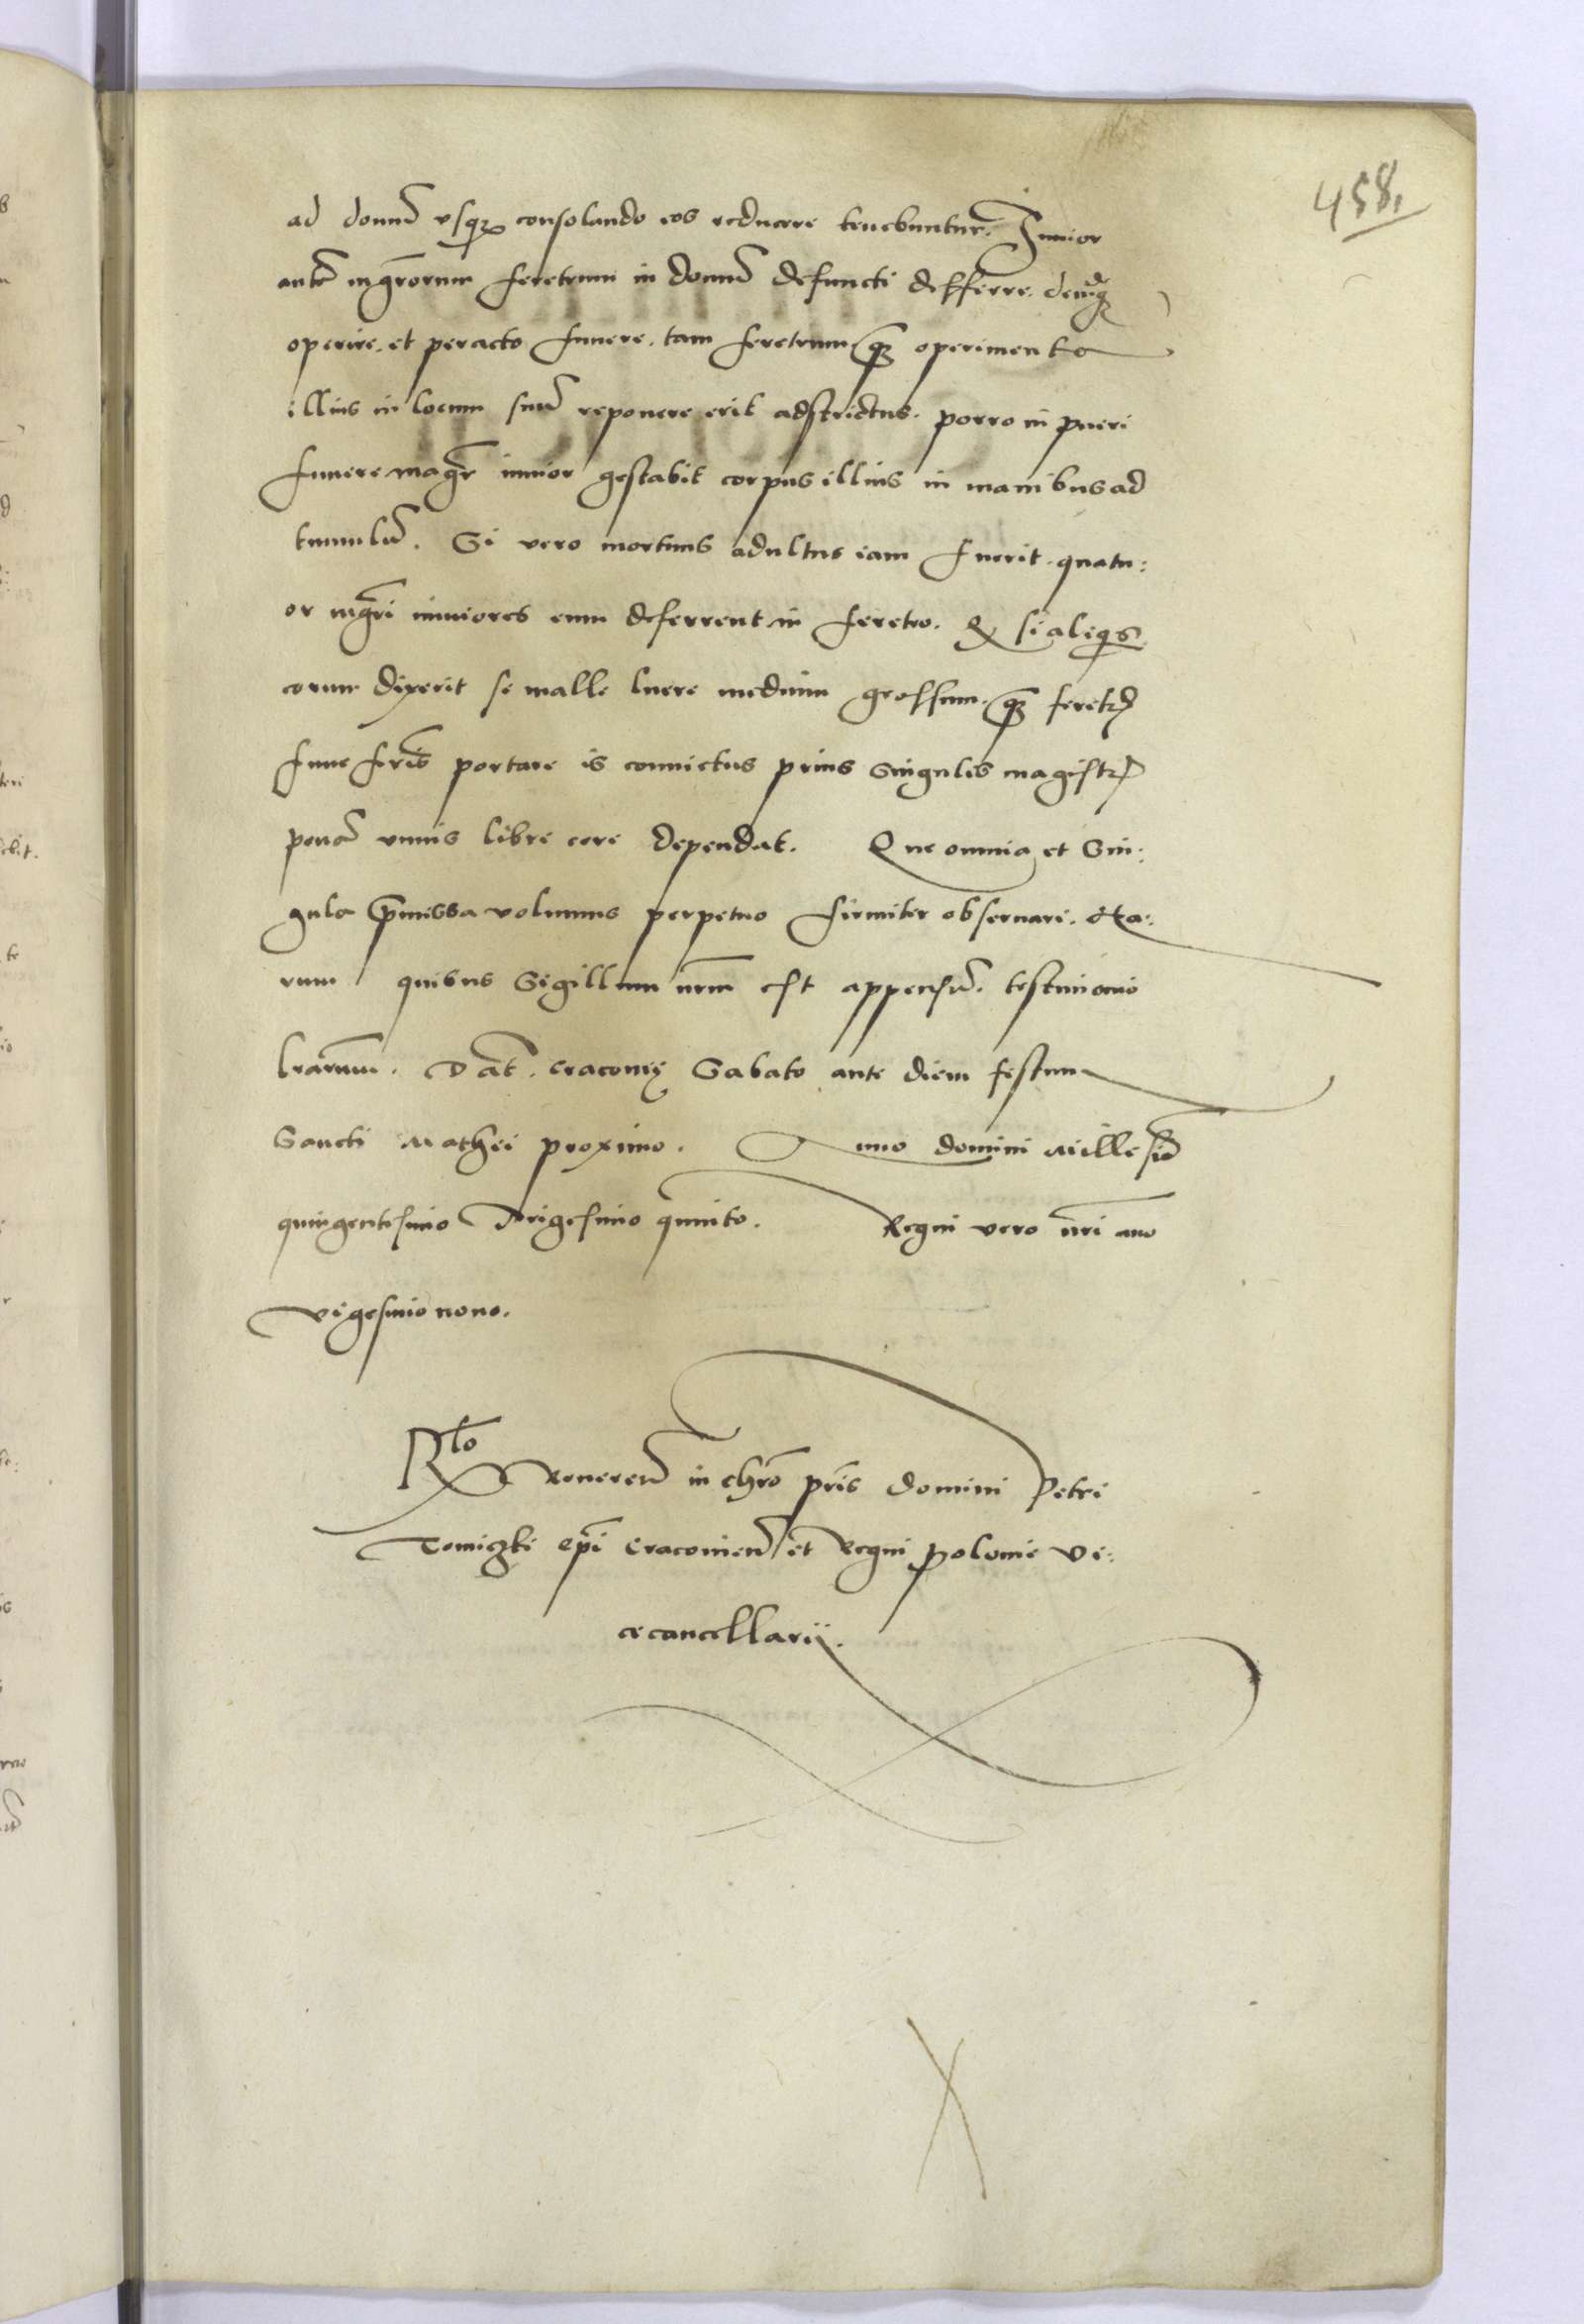 458.
ad domū vsq̨ consolando eos reducere tenebuntur. Junior
autē mgr̄orum feretrum in domū defuncti defferre. deinde
operire. et peracto funere. tam feretrum q̄ operimenta
illius in locum suū reponere erit adstrictus. porro in pueri
funere magr̄ iunior gestabit corpus illius in manibus ad
tumulū. Si vero mortuus adultus iam fuerit. quatu:
or mgr̄i iuniores eum deferrent in feretro. Q si aliq̨s
eorum dixerit se malle luere medium grossum. q̄ feretrū
funeris portare is conuictus prius singulis magistr̄
penā vnius libre cere dependat. Que omnia et Sin:
gula p̄missa volumus perpetuo firmiter obseruari. Ha:
rum quibus Sigillum nrm̄ est appensū. testimonio
lrarum̄. Dat̄. Cracouię Sabato ante diem festum
Sancti Mathei proximo. Anno domini Millesīo
quingentesimo Trigesimo quinto. Regni vero nr̄i āno
vigesimo nono.
Rlō Reuereñ in chrō pr̄is domini Petri
Tomiczki ep̄i Cracouień et Regni Polonie Vi:
cecancellarij.